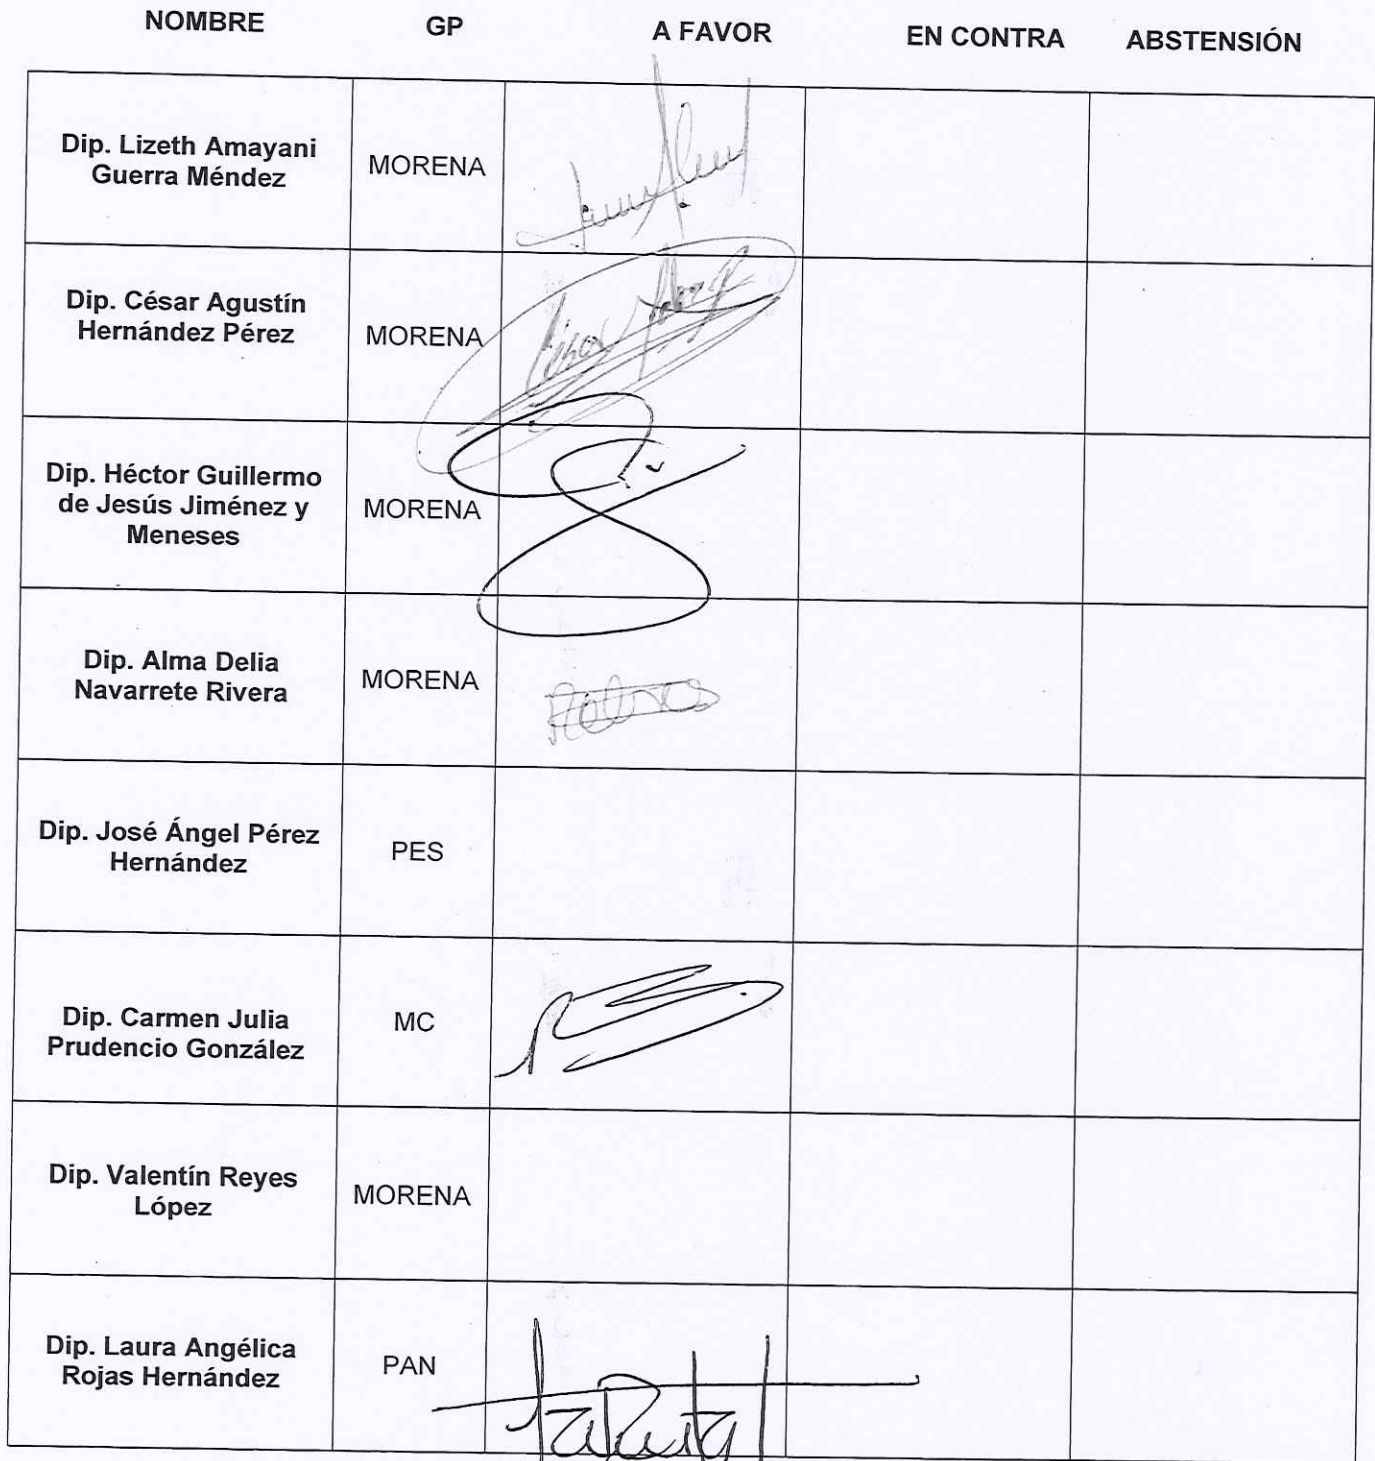 NOMBRE GP A FAVOR EN CONTRA ABSTENSIÓN
Dip. Lizeth Amayani
Guerra Méndez
MORENA
Dip. César Agustín
Hernández Pérez
MORENA
Dip. Héctor Guillermo
de Jesús Jiménez y
Meneses
MORENA
Dip. Alma Delia
Navarrete Rivera
MORENA
Dip. José Ángel Pérez
Hernández
PES
Dip. Carmen Julia
Prudencio González
MC
Dip. Valentín Reyes
López
MORENA
Dip. Laura Angélica
Rojas Hernández
PAN